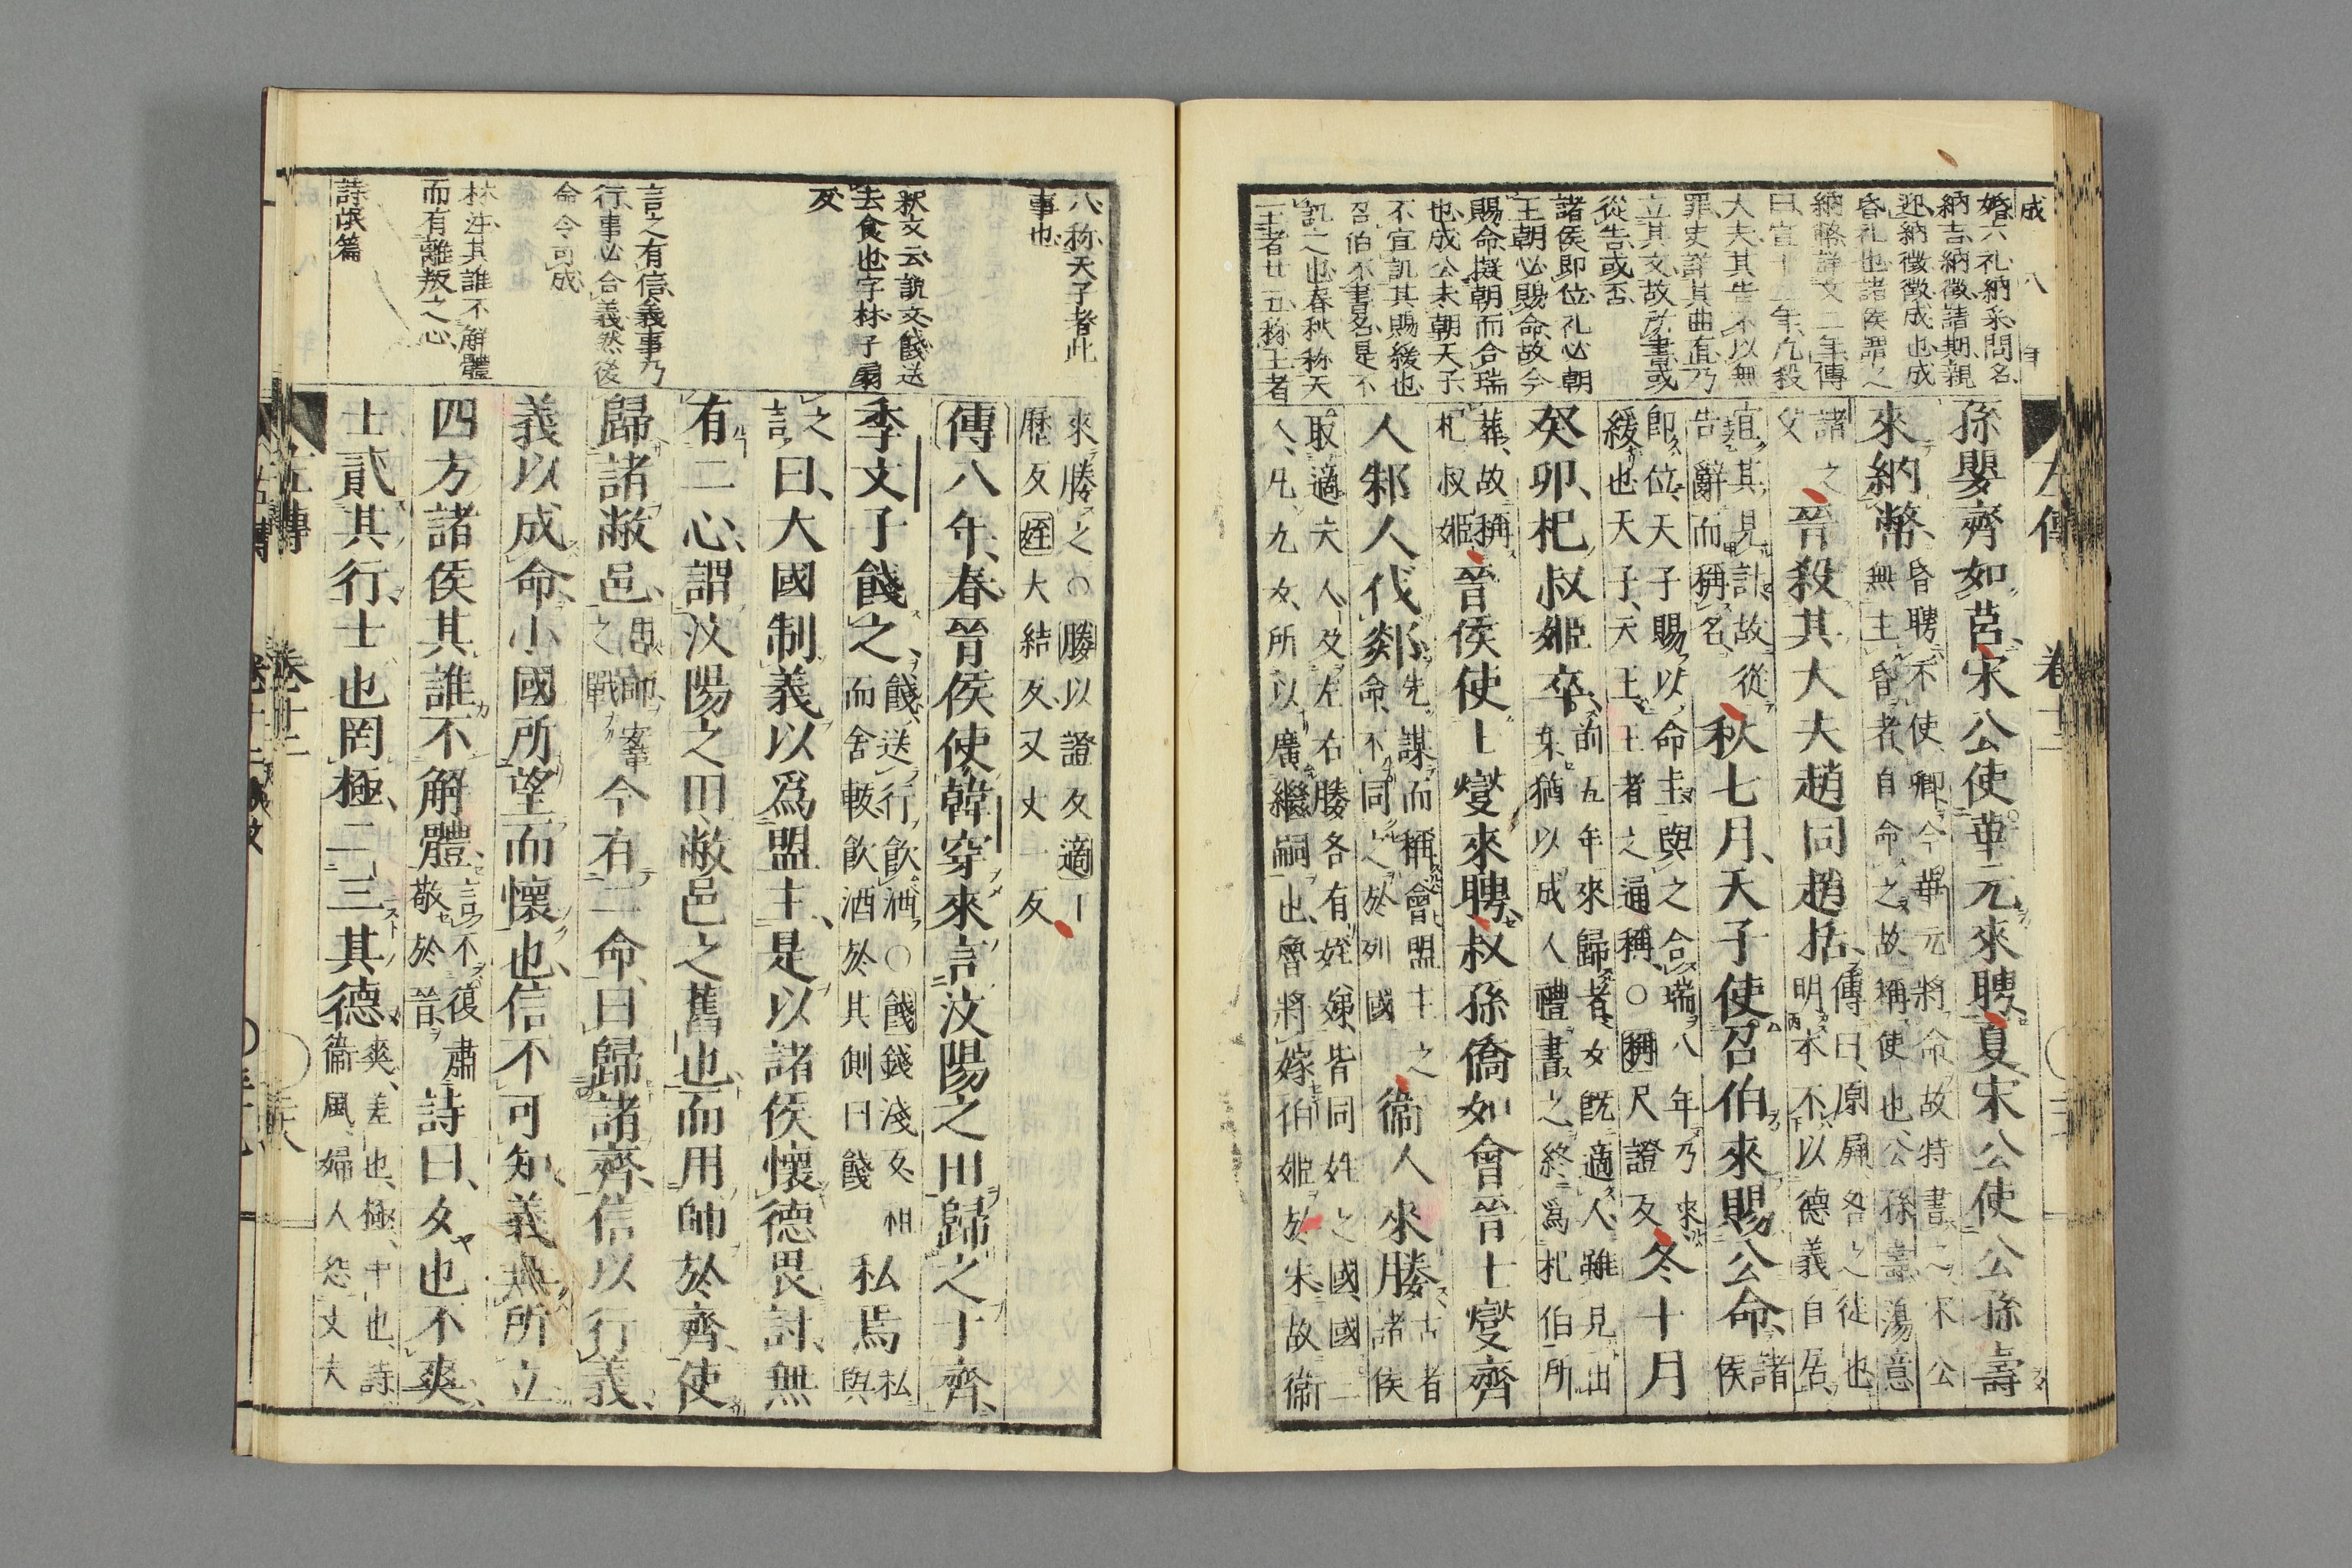 成 八 年
婚六礼納采問名
納吉納徴請期親
迎納徴徴成也成
昏礼也諸侯謂之
納幣詳文二年傳
大夫其告不以無
罪史詳其曲直乃
立其文故所書或
從告或否
諸侯即位礼必朝
王朝必賜命故今
賜命擬朝而合瑞
也成公未朝天子
不宜訊其賜緩也
召伯不書名是不
訊之也春秋称天
王者廿五称王者
左傳 卷十二
孫嬰齊如莒宋公使華元來聘夏宋公使公孫壽
來納幣昏聘不使卿今華元將命故特書之宋公
無主昏者自命之故稱使也公孫壽蕩意
諸之
父 晉殺其大夫趙同趙括傳曰原屏咎之徒也
明本不以德義自居
宜其見討故從
告辭而稱名秋七月天子使召伯來賜公命諸侯
即位天子賜以命圭與之合瑞八年乃來
緩也天子天王王者之通稱○稱尺證反冬十月
癸卯杞叔姬卒前五年來歸者女既適人雖見出
棄猶以成人禮書之終爲杞伯所
葬故稱
杞叔姬晉侯使士燮來聘叔孫僑如會晉士燮齊
人邾人伐郯先謀而稱會盟主之
命不同之於列國衞人來媵古者
諸侯
取適夫人及左右媵各有姪娣皆同姓之國國三
人凡九女所以廣繼嗣也魯將嫁伯姬於宋故衞
八称天子者此
事也
釈文云説文餞送
去食也字林子扇
反
言之有信義事乃
行事必合義然後
命令可成
林注其誰不解體
而有離叛之心
詩氓篇
來媵之○媵以證反適丁
歷反姪大結反又丈一反
傳八年春晉侯使韓穿來言汶陽之田歸之于齊
季文子餞之餞送行飲酒○餞錢淺反祖
而舍軷飲酒於其側曰餞私焉私
與
之
言曰大國制義以爲盟主是以諸侯懷德畏討無
有二心謂汶陽之田敝邑之舊也而用師於齊使
歸諸敝邑用師鞌
之戰今有二命曰歸諸齊信以行義
義以成命小國所望而懷也信不可知義無所立
四方諸侯其誰不解體言不復肅
敬於晉詩曰女也不爽
士貳其行士也罔極二三其德爽差也極中也詩
衞風婦人怨丈夫
左傳 卷十二 二十八